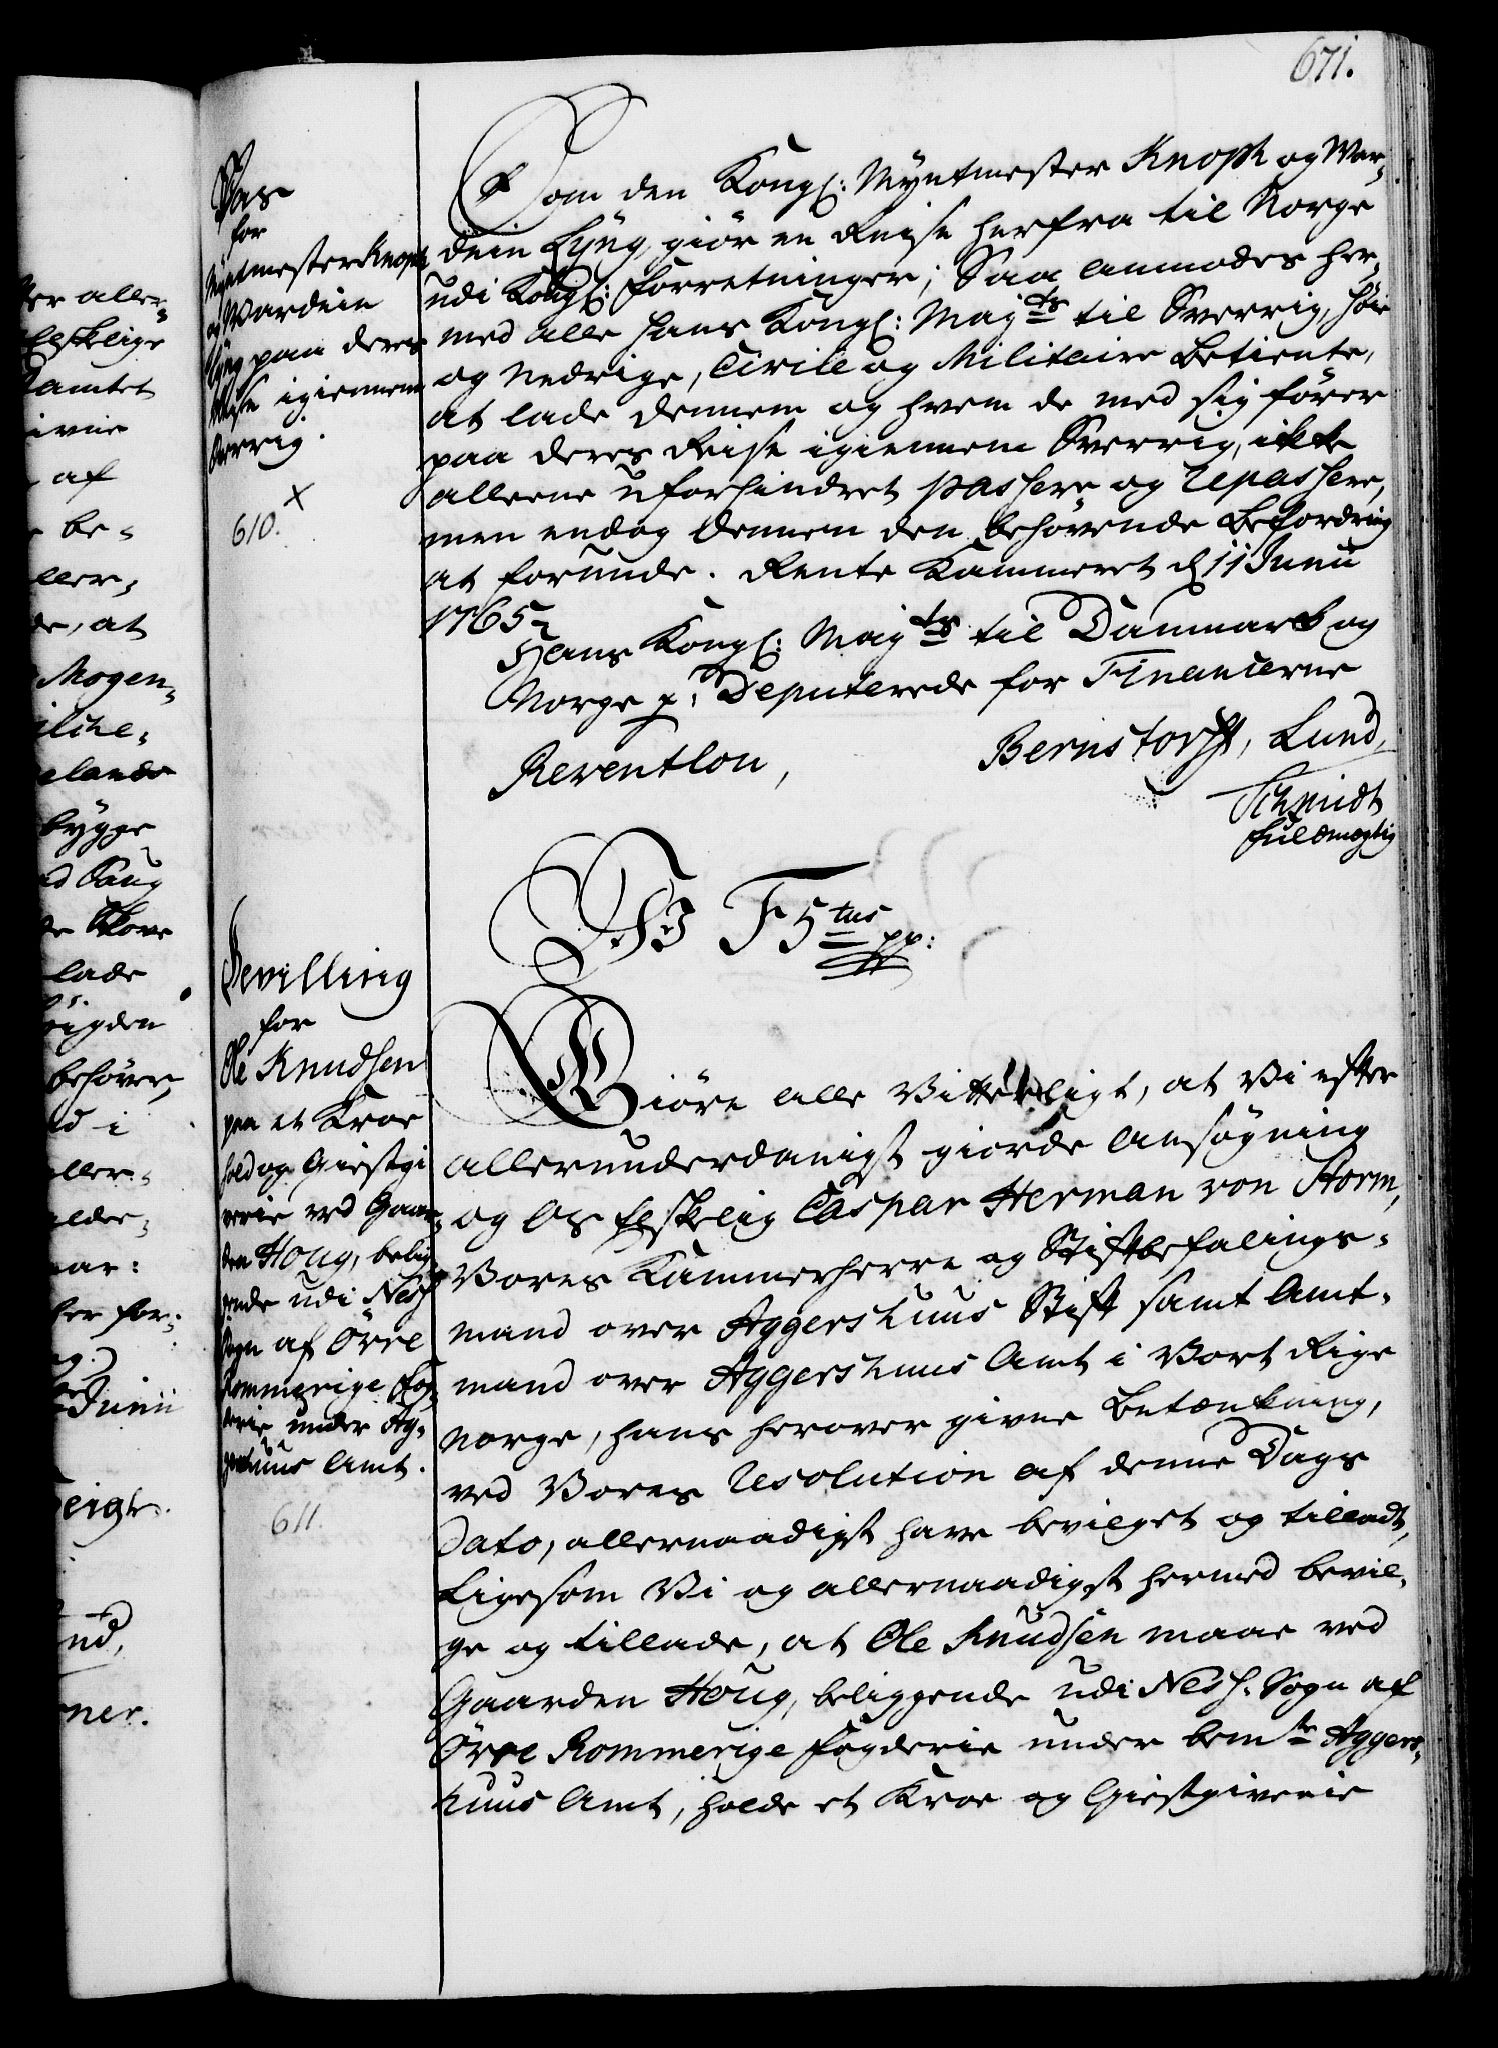 671.
Pas
for
Myntmester Knoph
og Wardein
Lyng paa deres
Reise igiennem
Sverrig.
610. ×
Som den Kongl: Myntmester Knoph og War-
dein Lyng, giör en Reise herfra til Norge
udi Kongl: Forretninger; Saa anmodes her-
med alle Hans Kongl: Mayts til Sverrig, höie
og nedrige, Civile og Militaire Betiente,
at lade dennem og hvem de med sig förer
paa deres Reise igiennem Sverrig, ikke
alleene uforhindret passere og repassere,
men endog dennem den behövende Befordring
at forunde. Rente Kammeret d 11 Junii
1765.
Hans Kongl: Mayts til Danmark og
Norge p. Deputerede for Financerne
Reventlou, Bernstorff, Lund,
Schmidt
fuldmægtig
Wi F 5tus pp:
Bevilling
for
Ole Knudsen
paa et Kroe
hold og Giestgi
verie ved Gaar-
den Houg, belig-
gende udi Næss
Sogn af Övre
Rommerige Fog-
derie under Ag-
gershuus Amt.
611.
Giöre alle Vitterligt, at Vi efter
allerunderdanigst giorde Ansögning
og Os Elskelig Caspar Herman von Storm,
Vores Kammerherre og Stiftbefalings-
mand over Aggershuus Stift samt Amt-
mand over Aggershuus Amt i Vort Rige
Norge, hans herover givne Betænkning,
ved Vores Resolution af denne Dags
Dato, allernaadigst have bevilget og tilladt,
Ligesom Vi og allernaadigst hermed bevil-
ge og tillade, at Ole Knudsen maae ved
Gaarden Houg, beliggende udi Ness Sogn af
Övre Rommerige Fogderie under bemte Aggers-
huus Amt, holde et Kroe og Giestgiverie